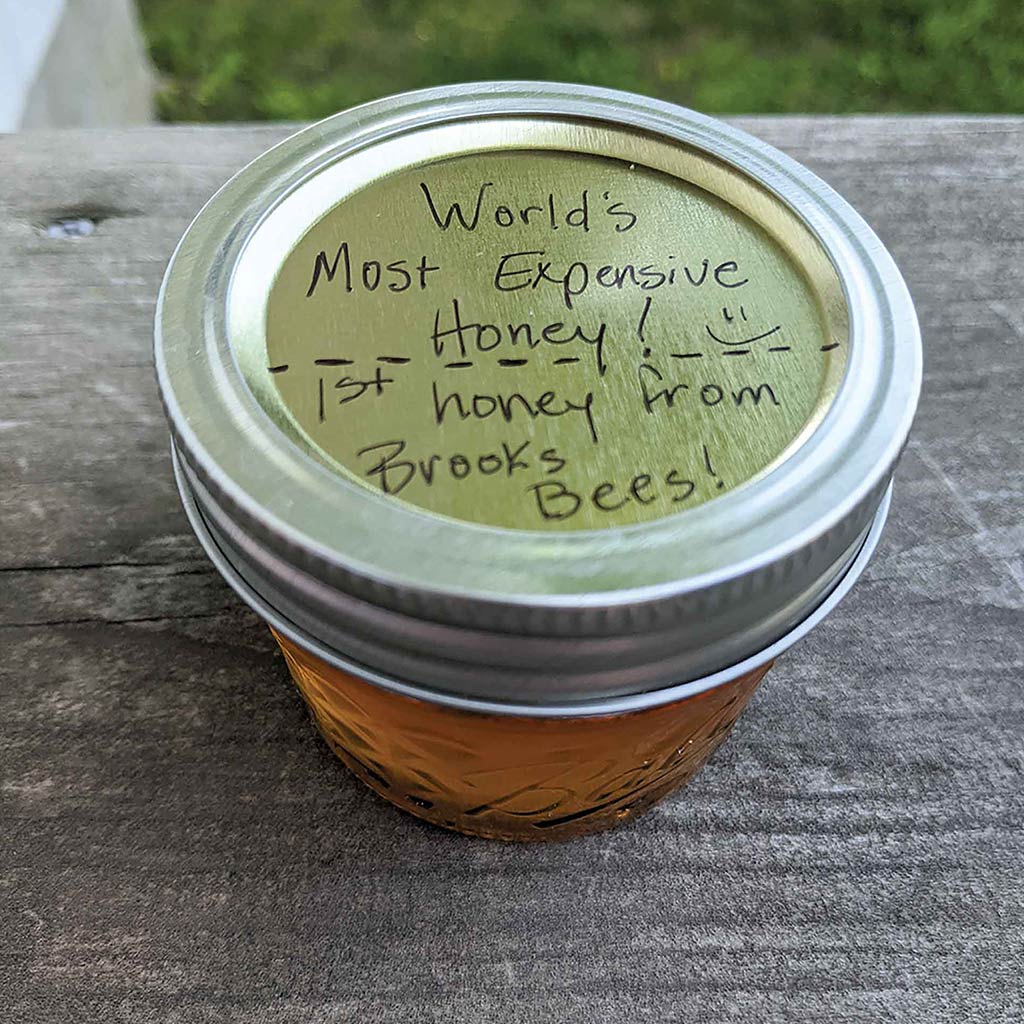 World's
Most Expensive
Honey! :)
1st honey from
Brooks
Bees!
Ball